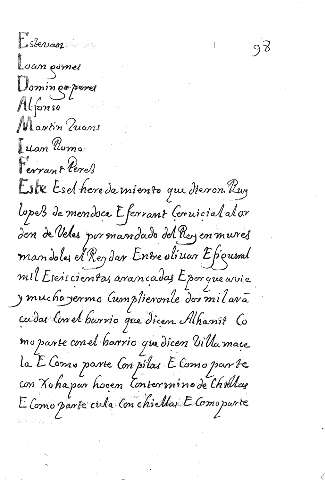 Estevan
98
Ioan gomes
Domingo peres
Alfonso
Martin Iuans
Iuan Romo
Ferrant Peres
Este Es el heredamiento que dieron Ruy
lopes de mendoca E ferrant Ceruicial al or
don de Veles por mandado del Rey en mures
mandoles el Rey dar Entre oliuar E figueral
mil E seiscientas arancadas E porque auie
y mucho yermo Cumplieronle dos mil arā
cadas Con el barrio que dicen Alhanit Co
mo parte con el barrio que dicen Villa mace
la E Como parte Con pilas E Como parte
con Xohapar hacen Contermino de Chillas
E Como parte cula Con chiellas E Como parte